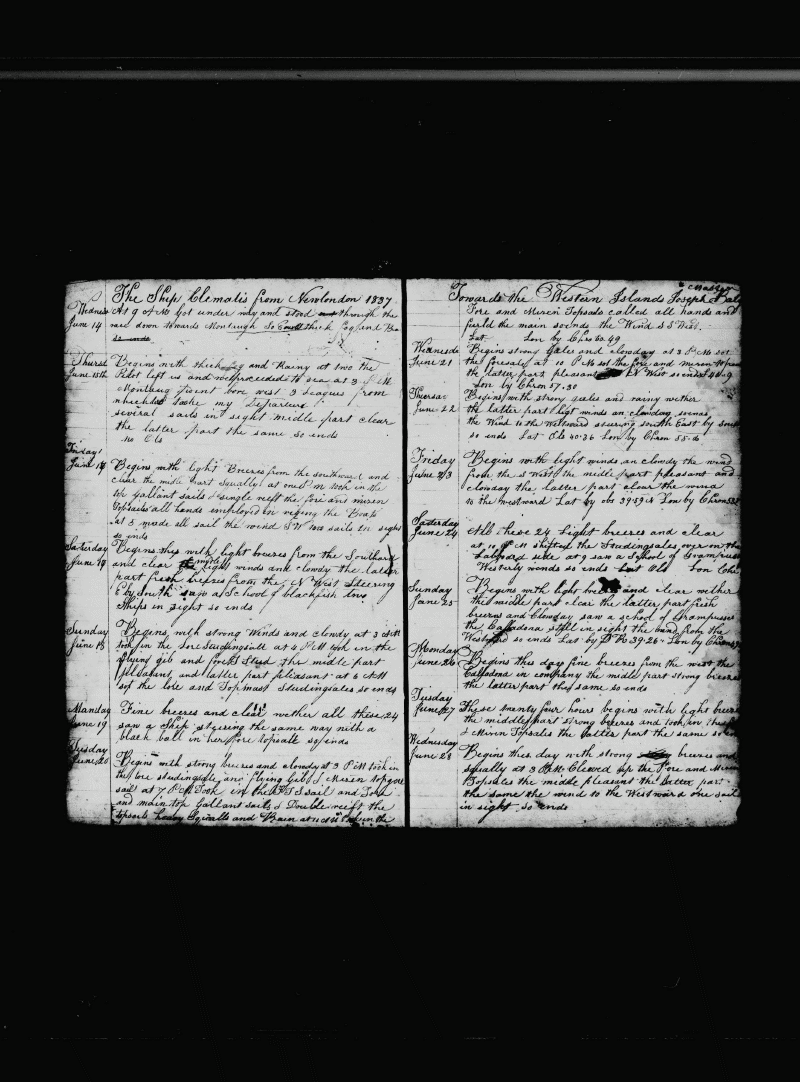 The Ship Clematis from Newlondon 1837
Wednes
June 14
At 9 A M Got under way and stood through the
race down towards Montaugh So Coust thick Fog and
so ends
Thursd
June 15th
Begins with thick fog and Rainy at two the
Pilot left us and we proceeded to sea at 3 P M
Montaug point bore west 3 Leagues from
which I take my departure
several sails in sight midle part clear
the latter part the same so ends
no Obs
Friday
June 16
Begins with light Breezes from the southward and
clear the midle part Squally at one P M took in the
top Gallant sails & single reeft the fore and mizen
Topsails all hands employed in reging the Boats
at 5 made all sail the wind S W two sails in sight
so ends
Saterday
June 17
Begins this with light breezes from the Southard
and clear midle light winds and clowdy the latter
part fresh brezes from the N West Steering
E by South saw a School of blackfish two
Ships in sight so ends
Sunday
June 18
Begins with strong Winds and clowdy at 3 A M
took in the fore Studingsall at 6 P M took in the
flying gib and fore Stud the midle part
pleasant and latter part pleasant at 6 A M
set the fore and Topmast Studingsales so ends
Manday
June 19
Fine breezes and clear wether all these 24
saw a Ship stersing the same way with a
black ball in her fore topsall so ends
Tusday
June 20
Begins with strong breezes and clowdy at 3 P M took in
the fore studingsale and flying Gib & Mizen topgant
sail at 7 P M Took in the sail and Fore
and main top Gallant sails & Double reeft the
topsails heavy Squalls and Rain at 11 in the
Towards the Western Islands Joseph
Master
Fore and Mizen Topsails called all hands and
furld the main so ends the Wind S S West
Lat Lon by Chro 60.49
Wednesda
June 21
Begins strong Gales and clowday at 3 P M set
the foresale at 10 P M set the fore and mizen topsai
the latter part pleasant N West so ends
Lon by Chron 57.30
Thursda
June 22
Begins with strong gales and rainy wether
the latter part ligt winds an clowding so ends
the Wind to the Westward stearing South East by South
so ends Lat Obs 40.36 Lon by Chron 55.6
Friday
June 23
Begins with light winds an clowdy the wind
from the S West the midle part pleasant and
clowday the latter part clear the wind
to the westward Lat by obs 39.59 N Lon by Chron
Saterday
June 24
All these 24 Light breezes and clear
at 10 P M shifted the Studingsales over on the
Labboard side at 9 saw a School of Grampuses
Westerly winds so ends Lat Obs Lon Chr
Sunday
June 25
Begins with light breezes and clear wether
this middle part clear the latter part fresh
breezes and Clowday saw a school of Grampusses
the Calladona still in sight the wind from the
Westward so ends Lat by D R 39.26 Lon by Chron
Monday
June 26
Begins this day fine breezes from the west the
Calladona in company the midle part strong breezes
the latter part the same so ends
Tusday
June 27
These twenty four hours begins with light breezes
the middle part strong breezes and took in
& Mizen Topsales the latter part the same so ends
Wednesday
June 28
Begins this day with strong breezes and
squally at 3 P M Clewed up the Fore and Mizen
Topsales the middle pleasant the Latter part
the same the wind to the Westward one sail
in sight so ends